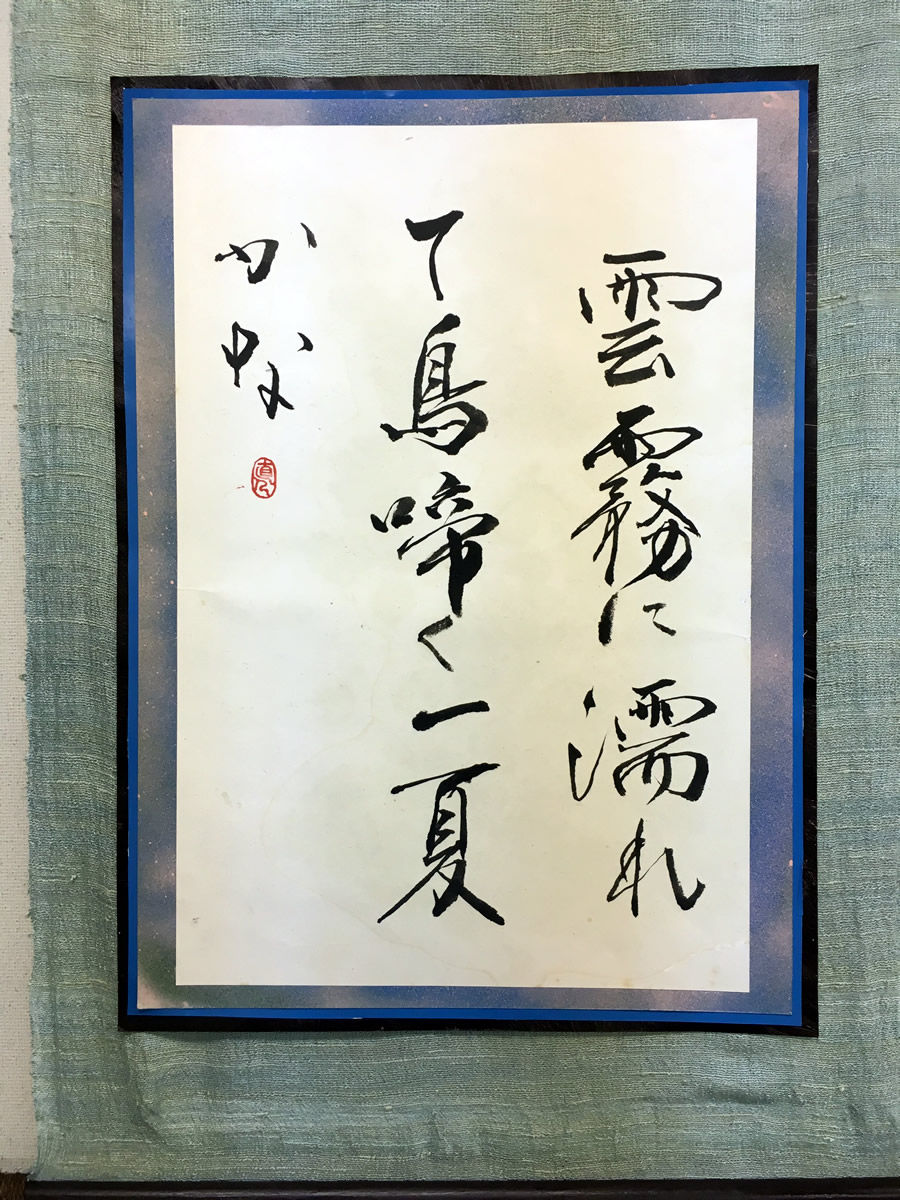 雲霧に濡れ
て鳥啼く一夏
かな